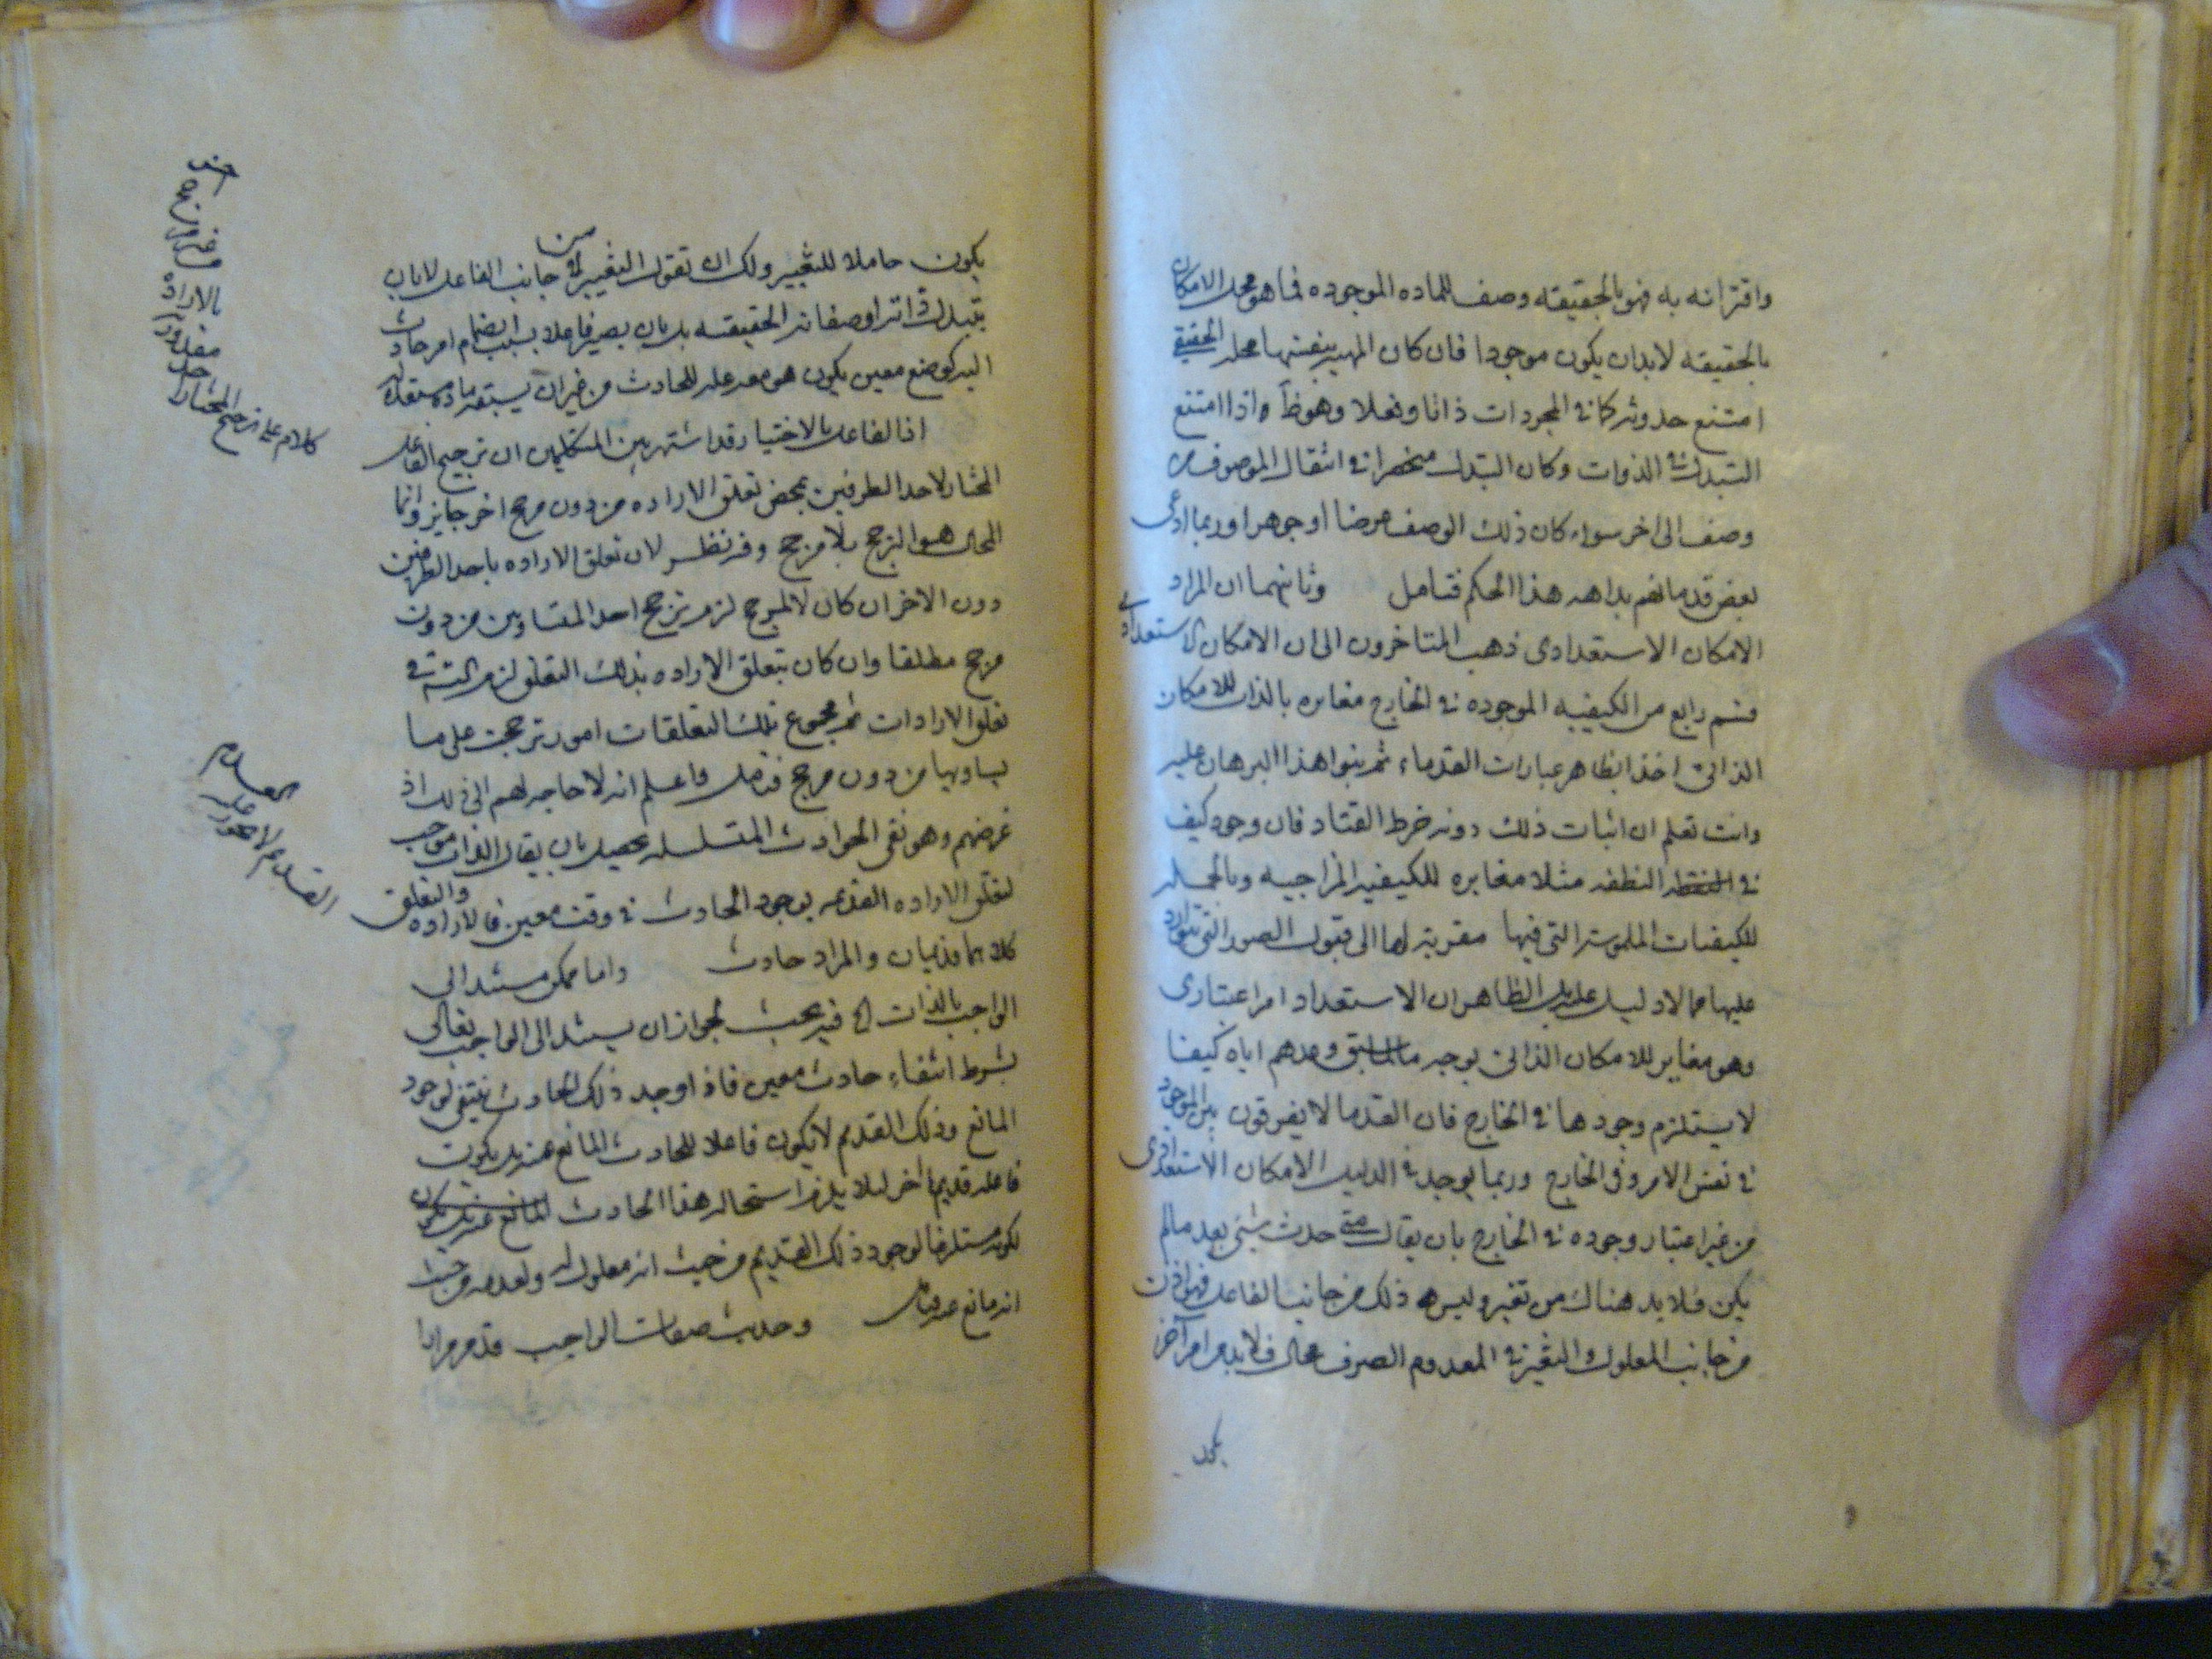 واقترانه به فهو بالحقيقه وصف للماده الموجوده فما هو محل الامكان
بالحقيقه لابدان يكون موجودا فان كان المهيه بنفسها محله الحقيقى
امتنع حدوثه كما فى المجردات ذاتا وفعلا وهو ظ واذا امتنع
التبدل فى الذوات وكان التبدل منحصرا فى انتقال الموصوف من
وصف الى اخر سواء كان ذلك الوصف عرضا او جوهرا وربما ادعى
بعض قدمائهم بداهه هذا الحكم فتامل وثانيهما ان المراد
الامكان الاستعدادى ذهب المتاخرون الى ان الامكان الاستعدادى
قسم رابع من الكيفيه الموجوده فى الخارج مغايره بالذات للامكان
الذاتى اخذا بظاهر عبارات القدماء ثم بنوا هذا البرهان عليه
وانت تعلم ان اثبات ذلك دونه خرط القتاد فان وجود كيف
فى النطفه مثلا مغايره للكيفيه المزاجيه وبالجمله
للكيفيات الملموسه التى فيها مقربه لها الى قبول الصور التى تتوارد
عليها مما لا دليل عليه بل الظاهر ان الاستعداد امر اعتبارى
وهو مغاير للامكان الذاتى بوجه ما وعدهم اياه كيفا
لا يستلزم وجودها فى الخارج فان القدما لا يفرقون بين الموجود
فى نفس الامر وفى الخارج وربما يوجد فى الدليل الامكان الاستعدادى
من غير اعتبار وجوده فى الخارج بان يقال متى حدث شئ بعد مالم
يكن فلا بد هناك من تغير وليس ذلك من جانب الفاعل فهو اذن
من جانب المعلول والتغير فى المعدوم الصرف محال فلابد من امر آخر
يكون
يكون حاملا للتغيير ولك ان تقول التغيير من جانب الفاعل لابان
يتبدل ذاته او صفاته الحقيقيه بل بان يصير فاعلا بسبب انضمام امر حادث
اليه كوضع معين يكون هو معد عله للحادث من غير ان يسبقه ماده مستعده له
اذ الفاعل بالاختيار قد اشتهر بين المتكلمين ان ترجيح الفاعل
المختار لاحد الطرفين بمحض تعلق الاراده من دون مرجح اخر جايز وانما
المحال هو الترجح بلا مرجح وفيه نظر لان تعلق الاراده باحد الطرفين
دون الاخر ان كان لا لمرجح لزم ترجح احد المتساويين من دون
مرجح مطلقا وان كان بتعلق الاراده بذلك التعلق لزم التسلسل فى
تعلق الارادات ثم مجموع تلك التعلقات امور ترجحت على ما
يساويها من دون مرجح فتامل واعلم انه لا حاجه لهم الى ذلك اذ
غرضهم وهو نفى الحوادث المتسلسله يحصل بان يقال الذات موجب
لتعلق الاراده القديمه بوجود الحادث فى وقت معين فالاراده والتعلق
كلاهما قديمان والمراد حادث واما ممكن مستند الى
الواجب بالذات الخ فيه بحث لجواز ان يستند الى الواجب تعالى
بشرط انتفاء حادث معين فاذا وجد ذلك الحادث ينتفى لوجود
المانع وذلك القديم لا يكون فاعلا للحادث المانع عنه بل يكون
فاعله قديما آخر لئلا يلزم استحاله هذا الحادث المانع عنه بل يكون
لكونه مستلزما لوجود ذلك القديم من حيث انه معلول له ولعدمه من حيث
انه مانع عنه فتامل وحديث صفات الواجب قد مر مرارا
كلام على ترجيح المختار
احد
مقدوريه
بالاراده
من غير مرجح
اخر